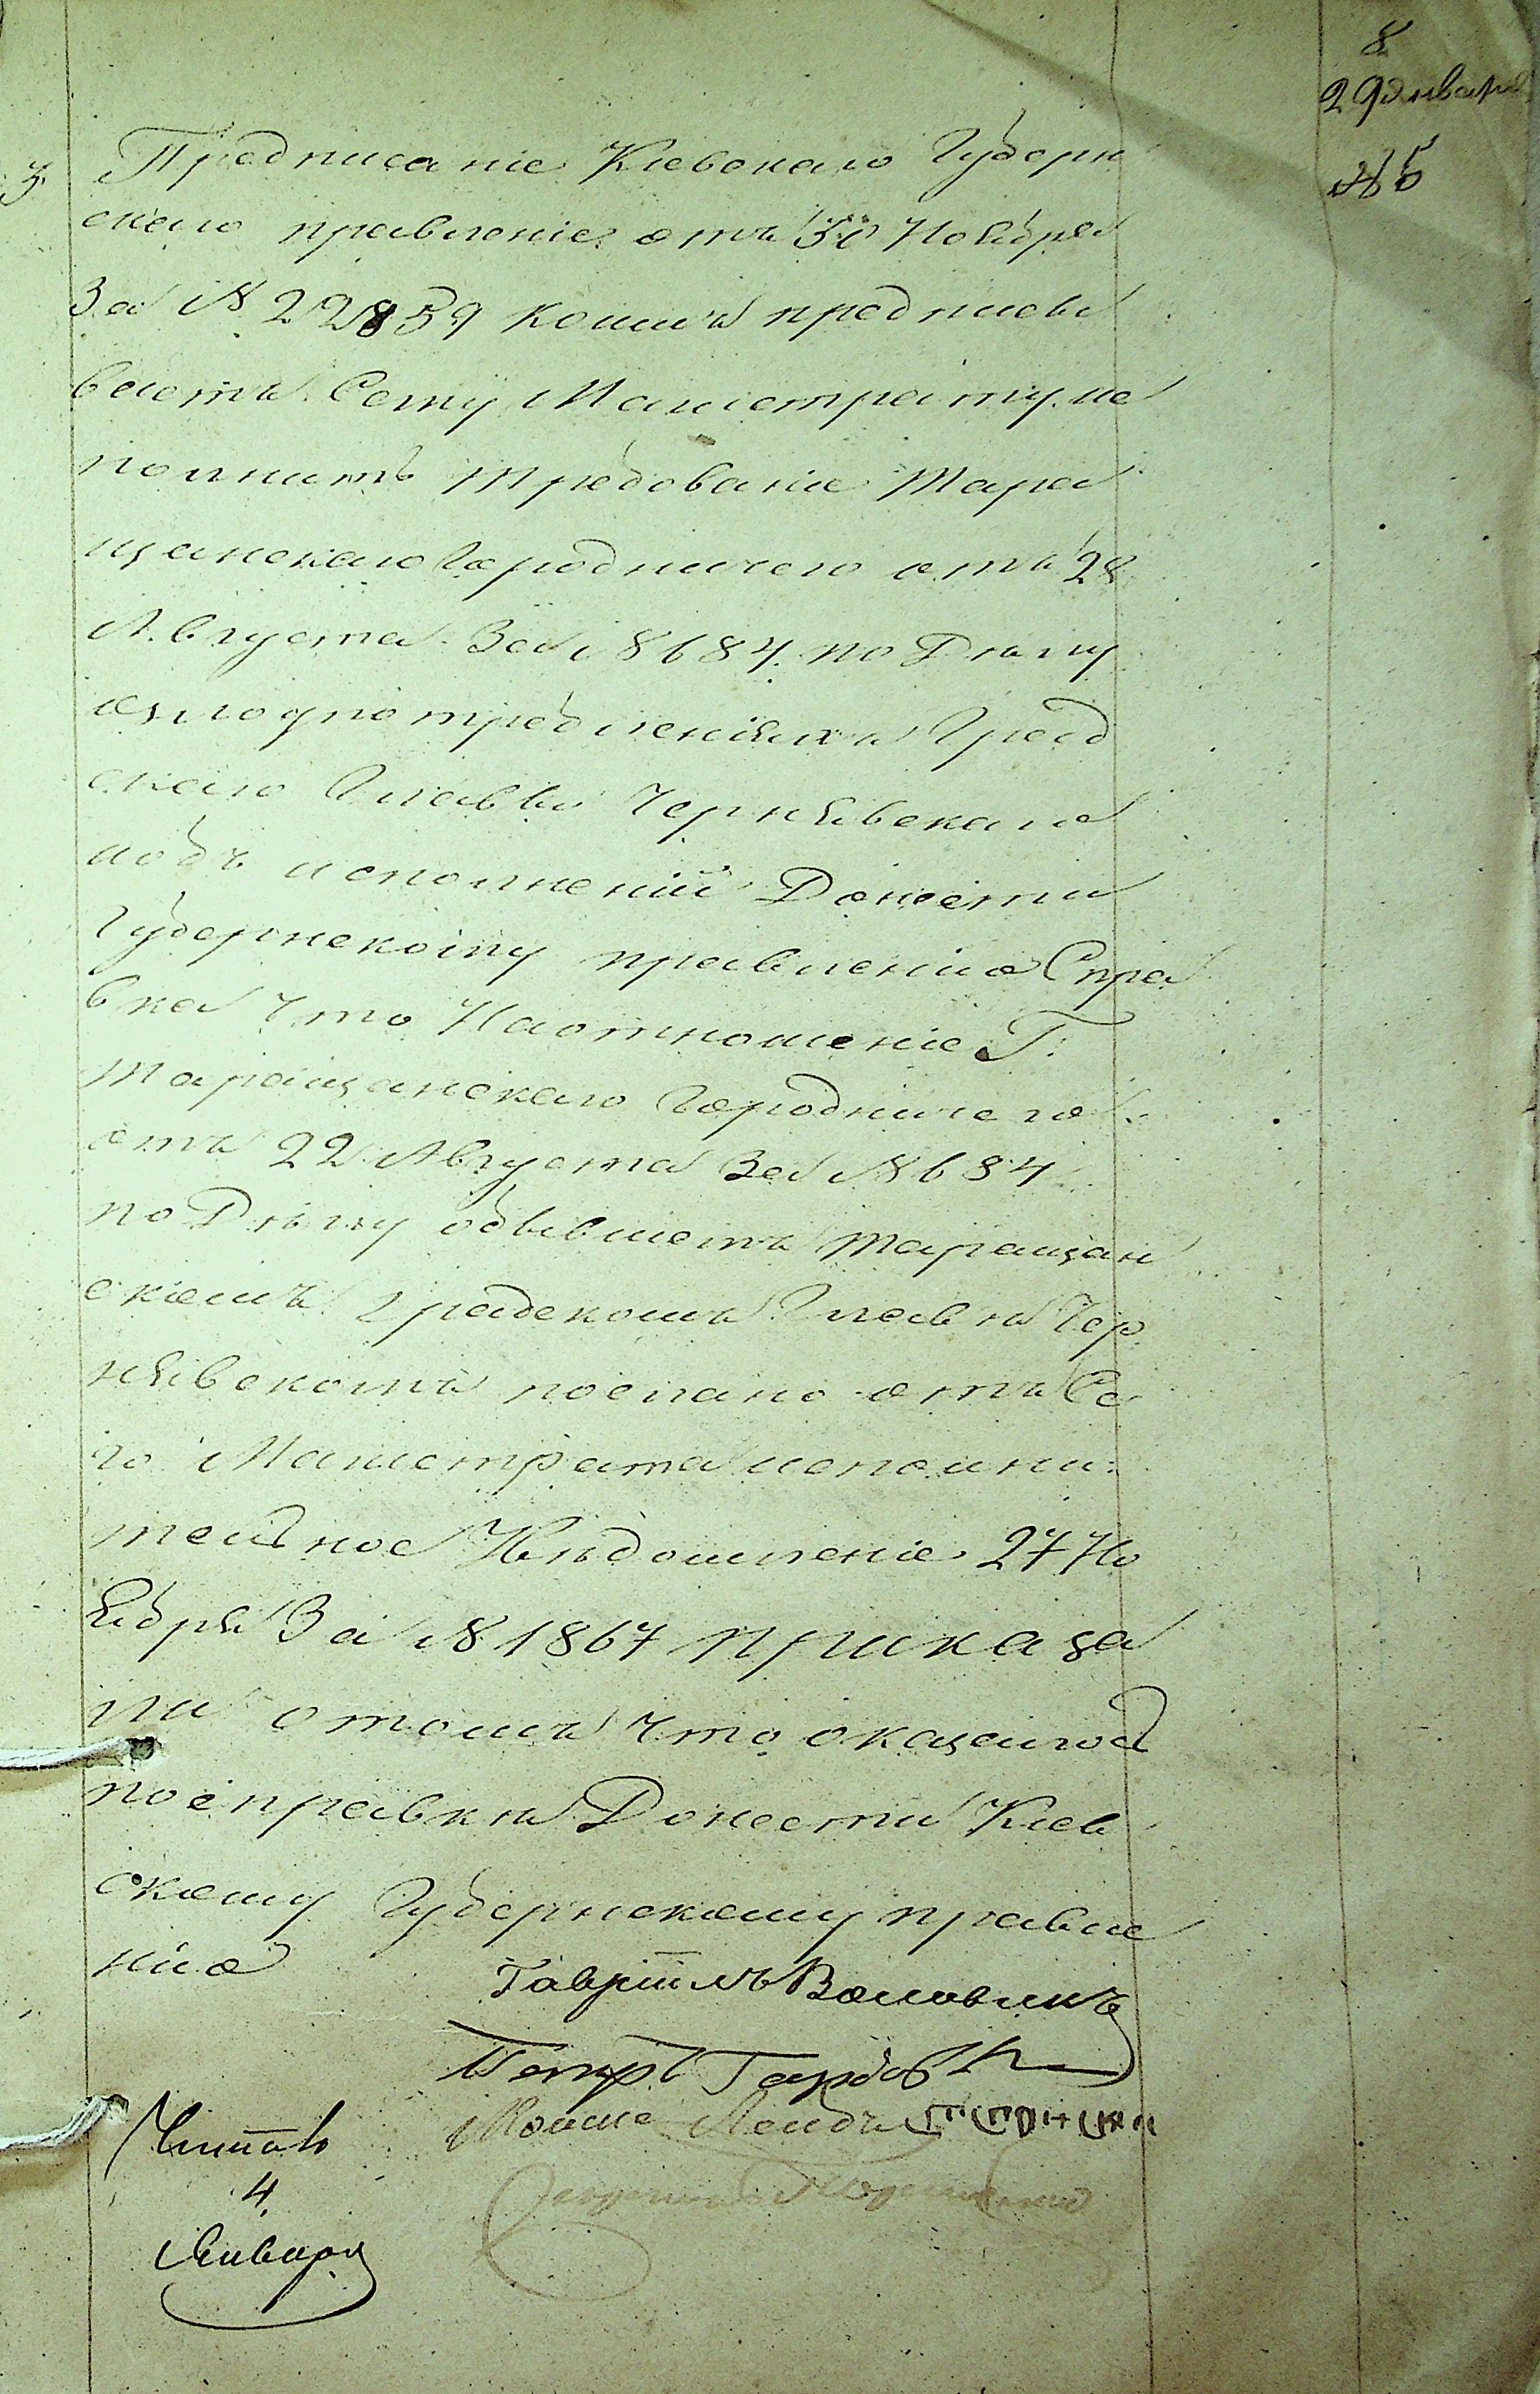 8
29 января
№ 5
3. Предписаніе Кіевскаго Губерн
скаго правленіе отъ 30 Ноября
За № 22859 коимъ предписы
ваетъ Сему Магистрату ис
полнить Требованіе Тара
щанскаго Городничего отъ 28
Августа За № 8684 по Делу
о злоупотребленіяхъ Град
скаго Главы Чернявскаго
объ исполненіи Донести
Губернскому правленію Спра
вка Что На отношеніе Г:
Таращанскаго Городничего
отъ 22 Августа За № 8684
по Делу объ бывшемъ Таращан
скомъ градскомъ Главе Чер
нявскомъ послано отъ Се
го Магистрата исполни:
тельное Уведомленіе 27 Но
ября За № 1867 приказа
ли отомъ что оказалось
по справке Донести Киев
скому Губернскому правле
нию
Гавріилъ Воловикъ
Петръ Горбов
Мошко
Читалъ
4
Января